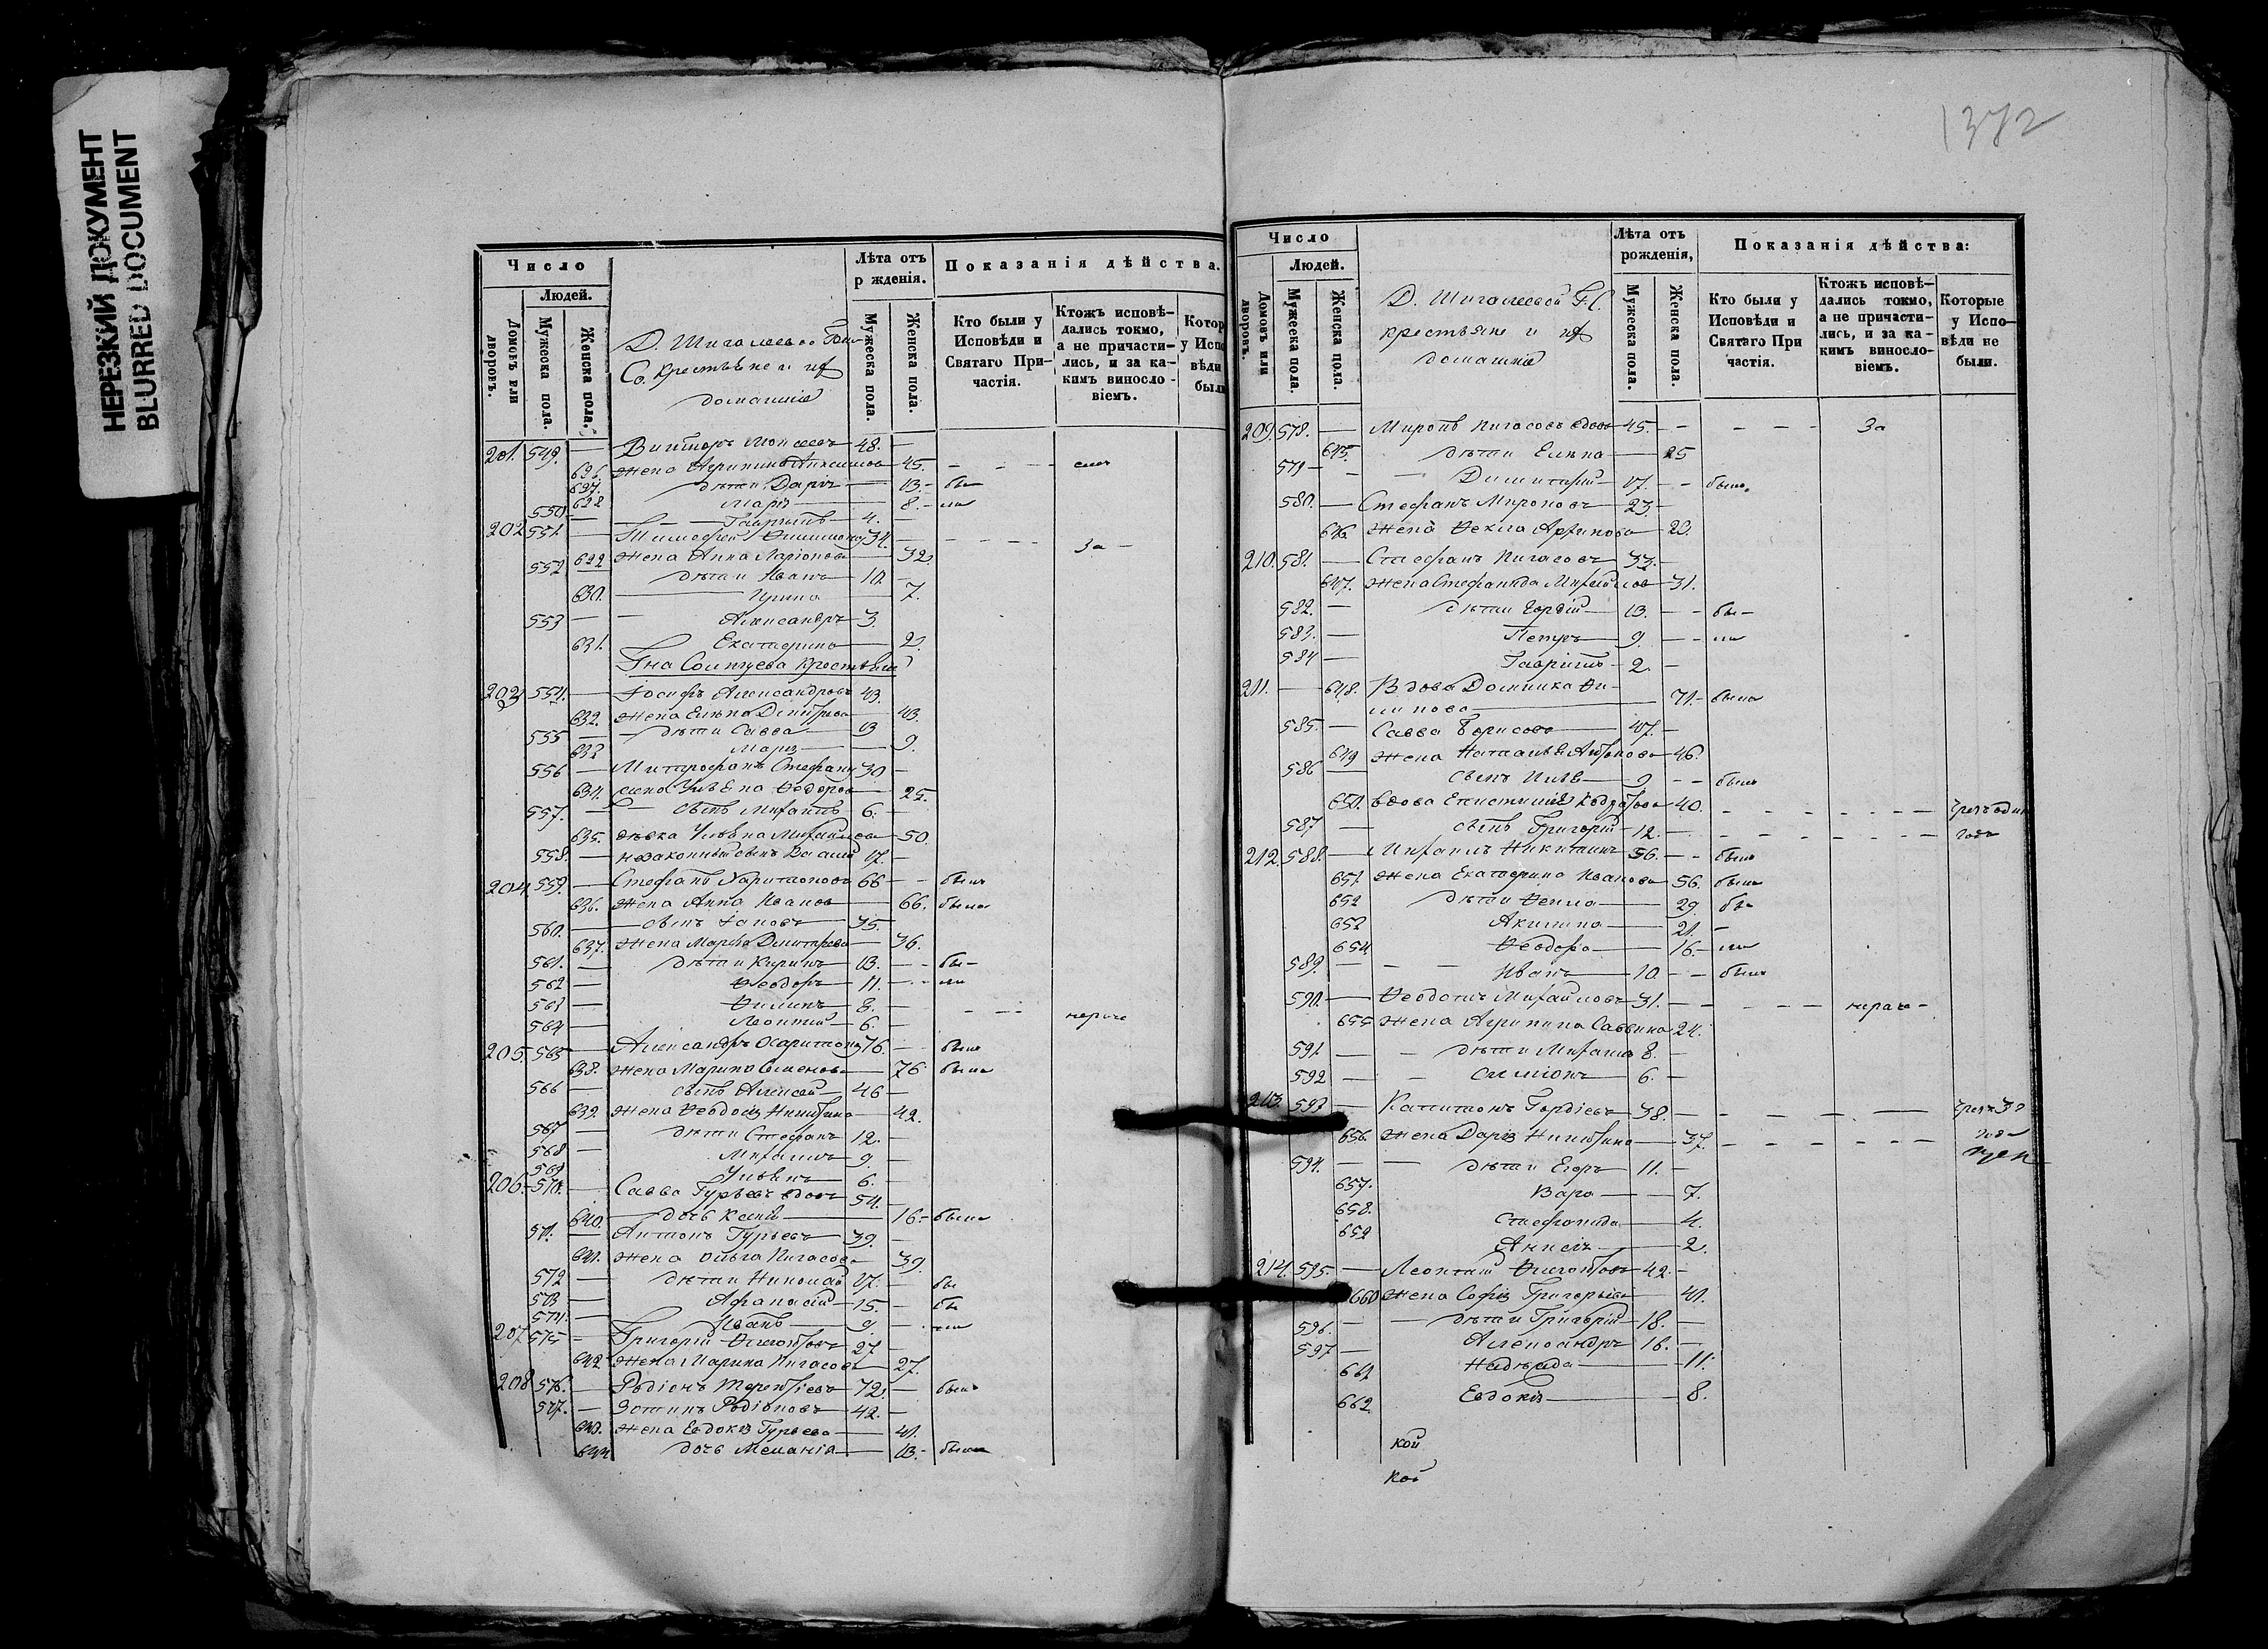 НЕРЕЗКИЙ ДОКУМЕНТ
BLURRED DOCUMENT
Число
Людей.
Домовъ или дворовъ.
Мужеска пола.
Женска пола.
Д. Шигалеевой
Со. крестьяне и ихъ
домашніе
Лѣта отъ
р жденія.
Мужеска пола.
Женска пола.
Показанія дѣйства.
Кто были у
Исповѣди и
Святаго При-
частія.
Ктожъ исповѣ-
дались токмо,
а не причасти-
лись, и за ка-
кимъ виносло-
віемъ.
Котор
у Испо
вѣди
были
201. 549. — Викторъ Моисеевъ 48. —
626. жена Агрипина 45. - - -
627. дѣти Дарія — 13. бы
628 Марія — 8. — ли
550 — — Гавріилъ 4. —
202 551. — Тимофей 34. - - - - За —
629 жена Анна Ларіонова — 32.
552 дѣти Иванъ — 10. —
630. — Ирина — 7.
553 — — Александръ 3.
631. Екатерина — 2.
Гна Солнцева крестьяне
203 554. — Іосифъ Александровъ 43.
632. жена Елена Димитріева 43.
555 — дѣти Савва 13
633 Марія — 9.
556 — Митрофанъ Стефановъ 30 —
634. жена Ульяна Феодорова 25.
557. — сынъ Михаилъ 6. —
635. дѣвка Ульяна Михайлова 50.
558. — незаконный сынъ 17. —
204. 559. — Стефанъ Харитоновъ 66 — - были
636. жена Анна Иванова — 66. была
560. — сынъ 35. —
637. жена Марфа Димитріева 36.
561. — дѣти Кирилъ — 13. — - бы-
562 — Феодоръ — 11. — - ли
563 — Филипъ — 8. —
564 — Леонтій — 6. — - - - нераче
205. 565 — Александръ Харитоновъ 76. — - были
638. жена Марина Семенова — 76 была
566 — сынъ Алексей — 46 —
639. жена Феодосія Никитина — 42.
567 — дѣти Стефанъ 12. —
568 — Михаилъ 9 —
569 Ульянъ 6. —
206. 570. — Савва Гурьевъ вдовъ 54.
640. — дочь — 16. — была
571. — Антонъ Гурьевъ 39. —
641. жена Ольга Пигасова 39.
572 — дѣти Николай 17. — бы
573 — Афанасій — 15. — бы
574. — Иванъ 9 — ли
207 575 — Григорій 27 —
642 жена Марина Пигасова 27.
208 576. — Родіонъ Терентіевъ 72. — былъ
577. — Родіоновъ 42. —
643. жена Евдокія Гурьева — 41.
644 дочь Меланія — 13. - была
1372
Число
Людей.
Домовъ или дворовъ.
Мужеска пола.
Женска пола.
Д. Шигалеевой Г. С.
крестьяне и ихъ
домашніе
Лѣта отъ
рожденія,
Мужеска пола.
Женска пола.
Показанія дѣйства:
Кто были у
Исповѣди и
Святаго При
частія.
Ктожъ исповѣ-
дались токмо,
а не причасти-
лись, и за ка-
кимъ виносло-
віемъ.
Которые
у Испо-
вѣди не
были.
209. 578. — Миронъ Пигасовъ вдовъ 45. — - - - - За
645. дѣти Елена — 25
579 — — Димитрій 17. — - былъ
580. — Стефанъ Мироновъ 23 —
646 жена Фекла Архипова 20.
210. 581. — Стефанъ Пигасовъ 33. —
647. жена Стефанида Михайлова 31.
582. — дѣти Гордій — 13. — - бы-
583. — Петръ 9. — - ли
584 — Гавріилъ 2. —
211. — 648. Вдова Домника Фи-
липова — 71. - была
585. — Савва Борисовъ 47. —
649 жена Наталья 46.
586 — сынъ 9 — - былъ
650. вдова 40. - - - - - - чрезъ один
587 — сынъ Григорій 12. — - - - - - - годъ
212. 588. — Михаилъ Никитинъ 56. — - былъ
651. жена Екатерина Иванова 56. была
652 дѣти Фекла — 29. бы
653 Акилина — 21. —
654 Феодора — 16. — ли
589. — — Иванъ — 10. — - былъ
590. — Феодотъ Михайловъ 31. — - - - нераче-
655 жена Агрипина Саввина 24.
591 — — дѣти Михаилъ 8. —
592 — — Симіонъ 6. —
213. 593 — Капитонъ Гордіевъ 38. — - - - — чрезъ 3
656. жена Дарія Никитина — 37. - - - - - - года
594. — — дѣти Егоръ 11. —
657. Вара — — 7.
658. Стефанида — 4.
659 Анисія — 2.
214. 595. — Леонтій 42. —
660 жена Софія Григорьева 41.
596. — — дѣти Григорій 18. —
597 — Александръ 16. —
661 Надежда — 11.
662 Евдокія — 8.
кой
кой